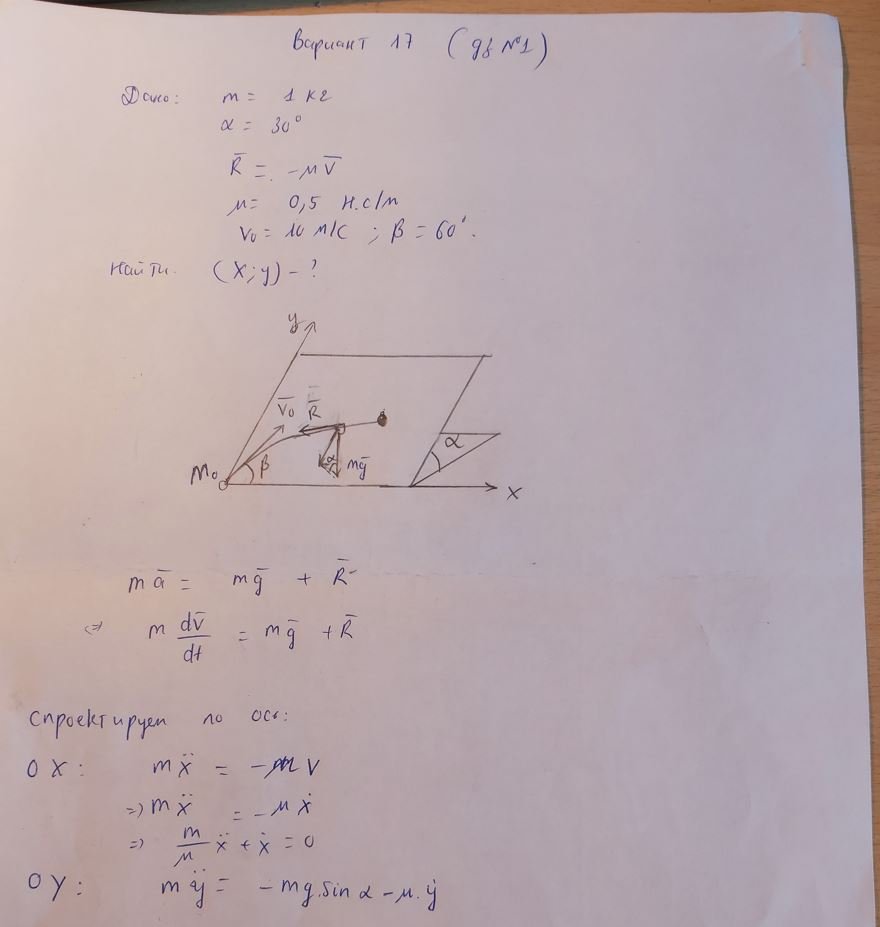 Вариант 17 (дз №1)
Дано: m = 1 кг
α = 30°
R̅ = -μV̅
μ = 0,5 н.с/м
V₀ = 10 м/с ; β = 60°.
Найти. (x;y) - ?
y
V̅₀ R̅
M₀ β α mg̅ α
x
ma̅ = mg̅ + R̅
⇔ m dv̅/dt = mg̅ + R̅
спроектируем по оси:
OX: mẍ = -μ V
=> mẍ = -μ ẋ
=> m/μ ẍ + ẋ = 0
OY: mÿ = -mg.sin α - μ.ẏ